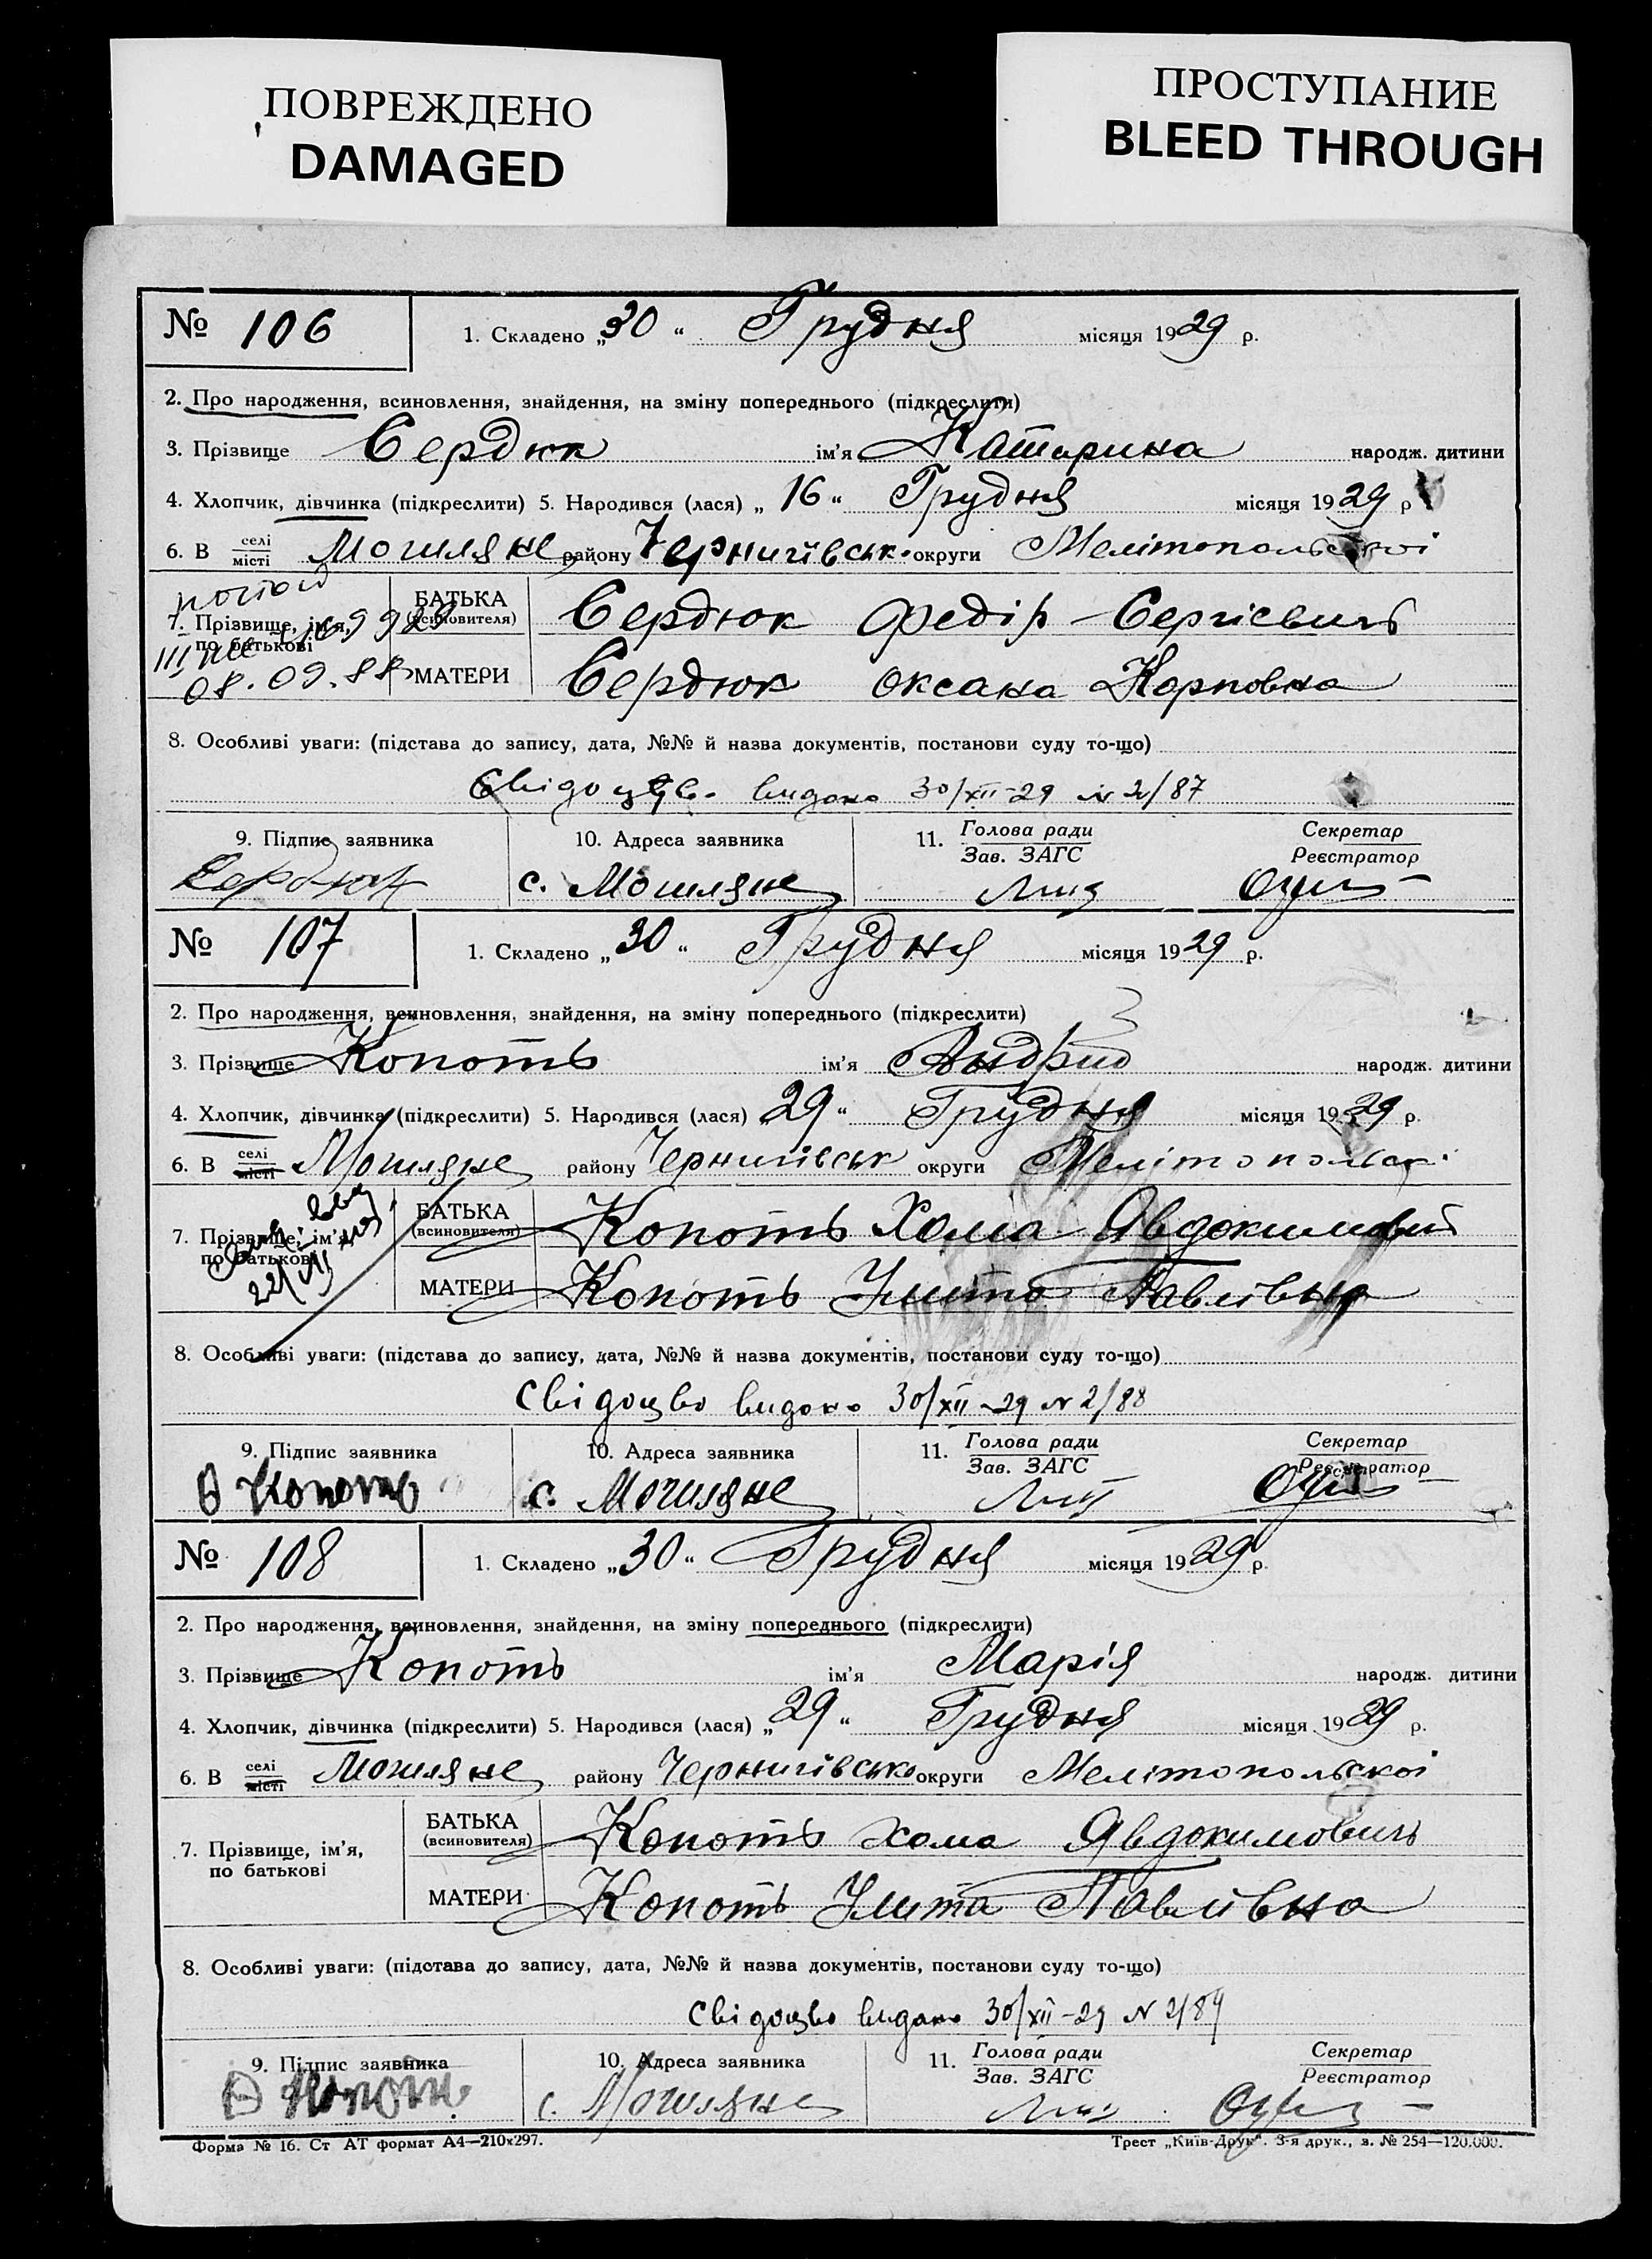 ПОВРЕЖДЕНО
DAMAGED
ПРОСТУПАНИЕ
BLEED THROUGH
№ 106 1. Складено „30“ Грудня місяця 1929 р.
2. Про народження, всиновлення, знайдення, на зміну попереднього (підкреслити)
3. Прізвище Сердюк ім'я Катерина народж. дитини
4. Хлопчик, дівчинка (підкреслити) 5. Народився (лася) „16“ Грудня місяця 1929 р
6. В селі місті Могиляне району Чернигівськ. округи Мелітопольської
7. Прізвище, ім'я, по батькові
08.09.88
БАТЬКА (всиновителя) Сердюк Федір Сергієвичь
МАТЕРИ Сердюк Оксана Карповна
8. Особливі уваги: (підстава до запису, дата, №№ й назва документів, постанови суду то-що)
видано 30/XII-29 N 2/87
9. Підпис заявника 10. Адреса заявника 11. Голова ради Зав. ЗАГС Секретар Реєстратор
Сердюк с. Могиляне
№ 107 1. Складено „30“ Грудня місяця 1929 р.
2. Про народження, всиновлення, знайдення, на зміну попереднього (підкреслити)
3. Прізвище Копоть ім'я Андрий народж. дитини
4. Хлопчик, дівчинка (підкреслити) 5. Народився (лася) „29“ Грудня місяця 1929 р.
6. В селі місті Могиляне району Чернигівськ округи Мелітопольск.
7. Прізвище, ім'я, по батькові
БАТЬКА (всиновителя) Копоть Хома Явдокимович
МАТЕРИ Копоть Улита Павлівна
8. Особливі уваги: (підстава до запису, дата, №№ й назва документів, постанови суду то-що)
Свідоцво видано 30/XII-29 N 2/88
9. Підпис заявника 10. Адреса заявника 11. Голова ради Зав. ЗАГС Секретар Реєстратор
Копоть с. Могиляне
№ 108 1. Складено „30“ Грудня місяця 1929 р.
2. Про народження, всиновлення, знайдення, на зміну попереднього (підкреслити)
3. Прізвище Копоть ім'я Марія народж. дитини
4. Хлопчик, дівчинка (підкреслити) 5. Народився (лася) „29“ Грудня місяця 1929 р.
6. В селі місті Могиляне району Чернигівсько округи Мелітопольскої
7. Прізвище, ім'я, по батькові
БАТЬКА (всиновителя) Копоть Хома Явдокимовичь
МАТЕРИ Копоть Улита Павлівна
8. Особливі уваги: (підстава до запису, дата, №№ й назва документів, постанови суду то-що)
Свідоцво видано 30/XII-29 N 2/89
9. Підпис заявника 10. Адреса заявника 11. Голова ради Зав. ЗАГС Секретар Реєстратор
Копоть с. Могиляне
Форма № 16. Ст АТ формат А4—210х297. Трест „Київ-Друк“. 3-я друк., з. № 254—120.000.